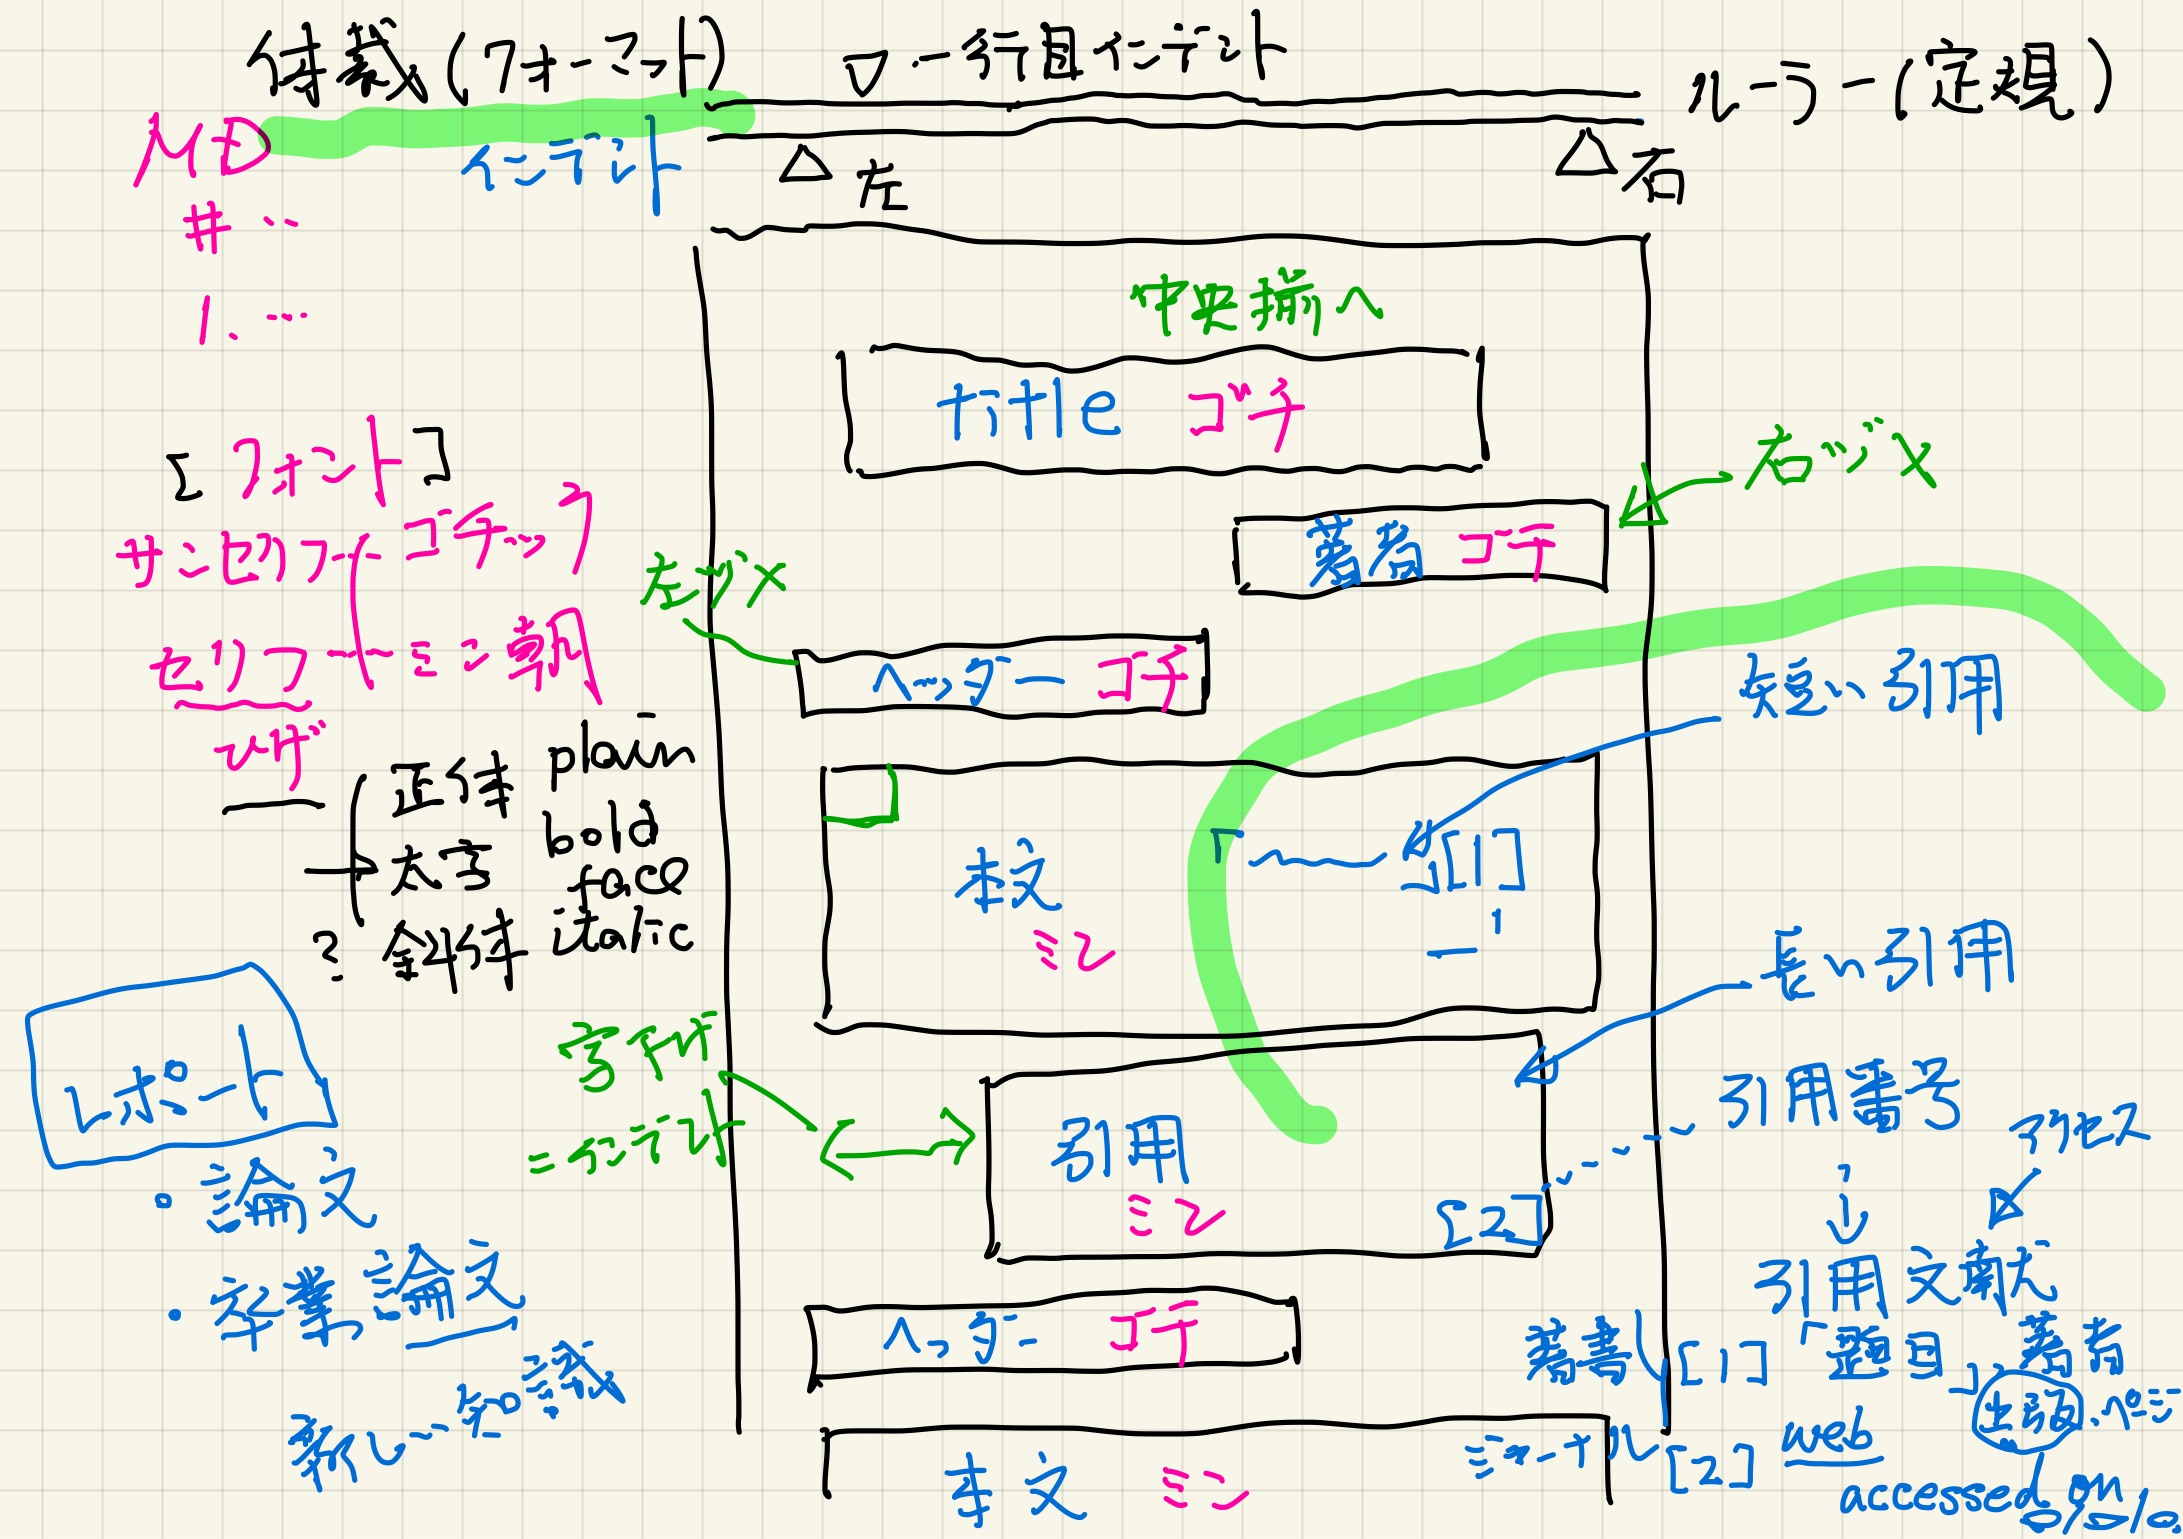 体裁(フォーマット)
▽ 一行目インデント
ルーラー(定規)
MD
インデント
△ 左
△ 右
# ‥
1. …
中央揃へ
title ゴチ
[フォント]
右ヅメ
サンセリフ--ゴチック
著者 ゴチ
左ヅメ
セリフ--ミン朝
ヘッダー ゴチ
短い引用
ひげ
正体 plain
太字 bold face
? 斜体 italic
「 」[1]
本文
ミン
長い引用
字下げ
=インデント
レポート
引用
ミン
[2]
引用番号
アクセス
↓
・論文
・卒業論文
新しい知識
引用文献
ヘッダー ゴチ
著書 [1]「題目」, 著者
出版, ページ
本文 ミン
ジャーナル [2] web
accessed on